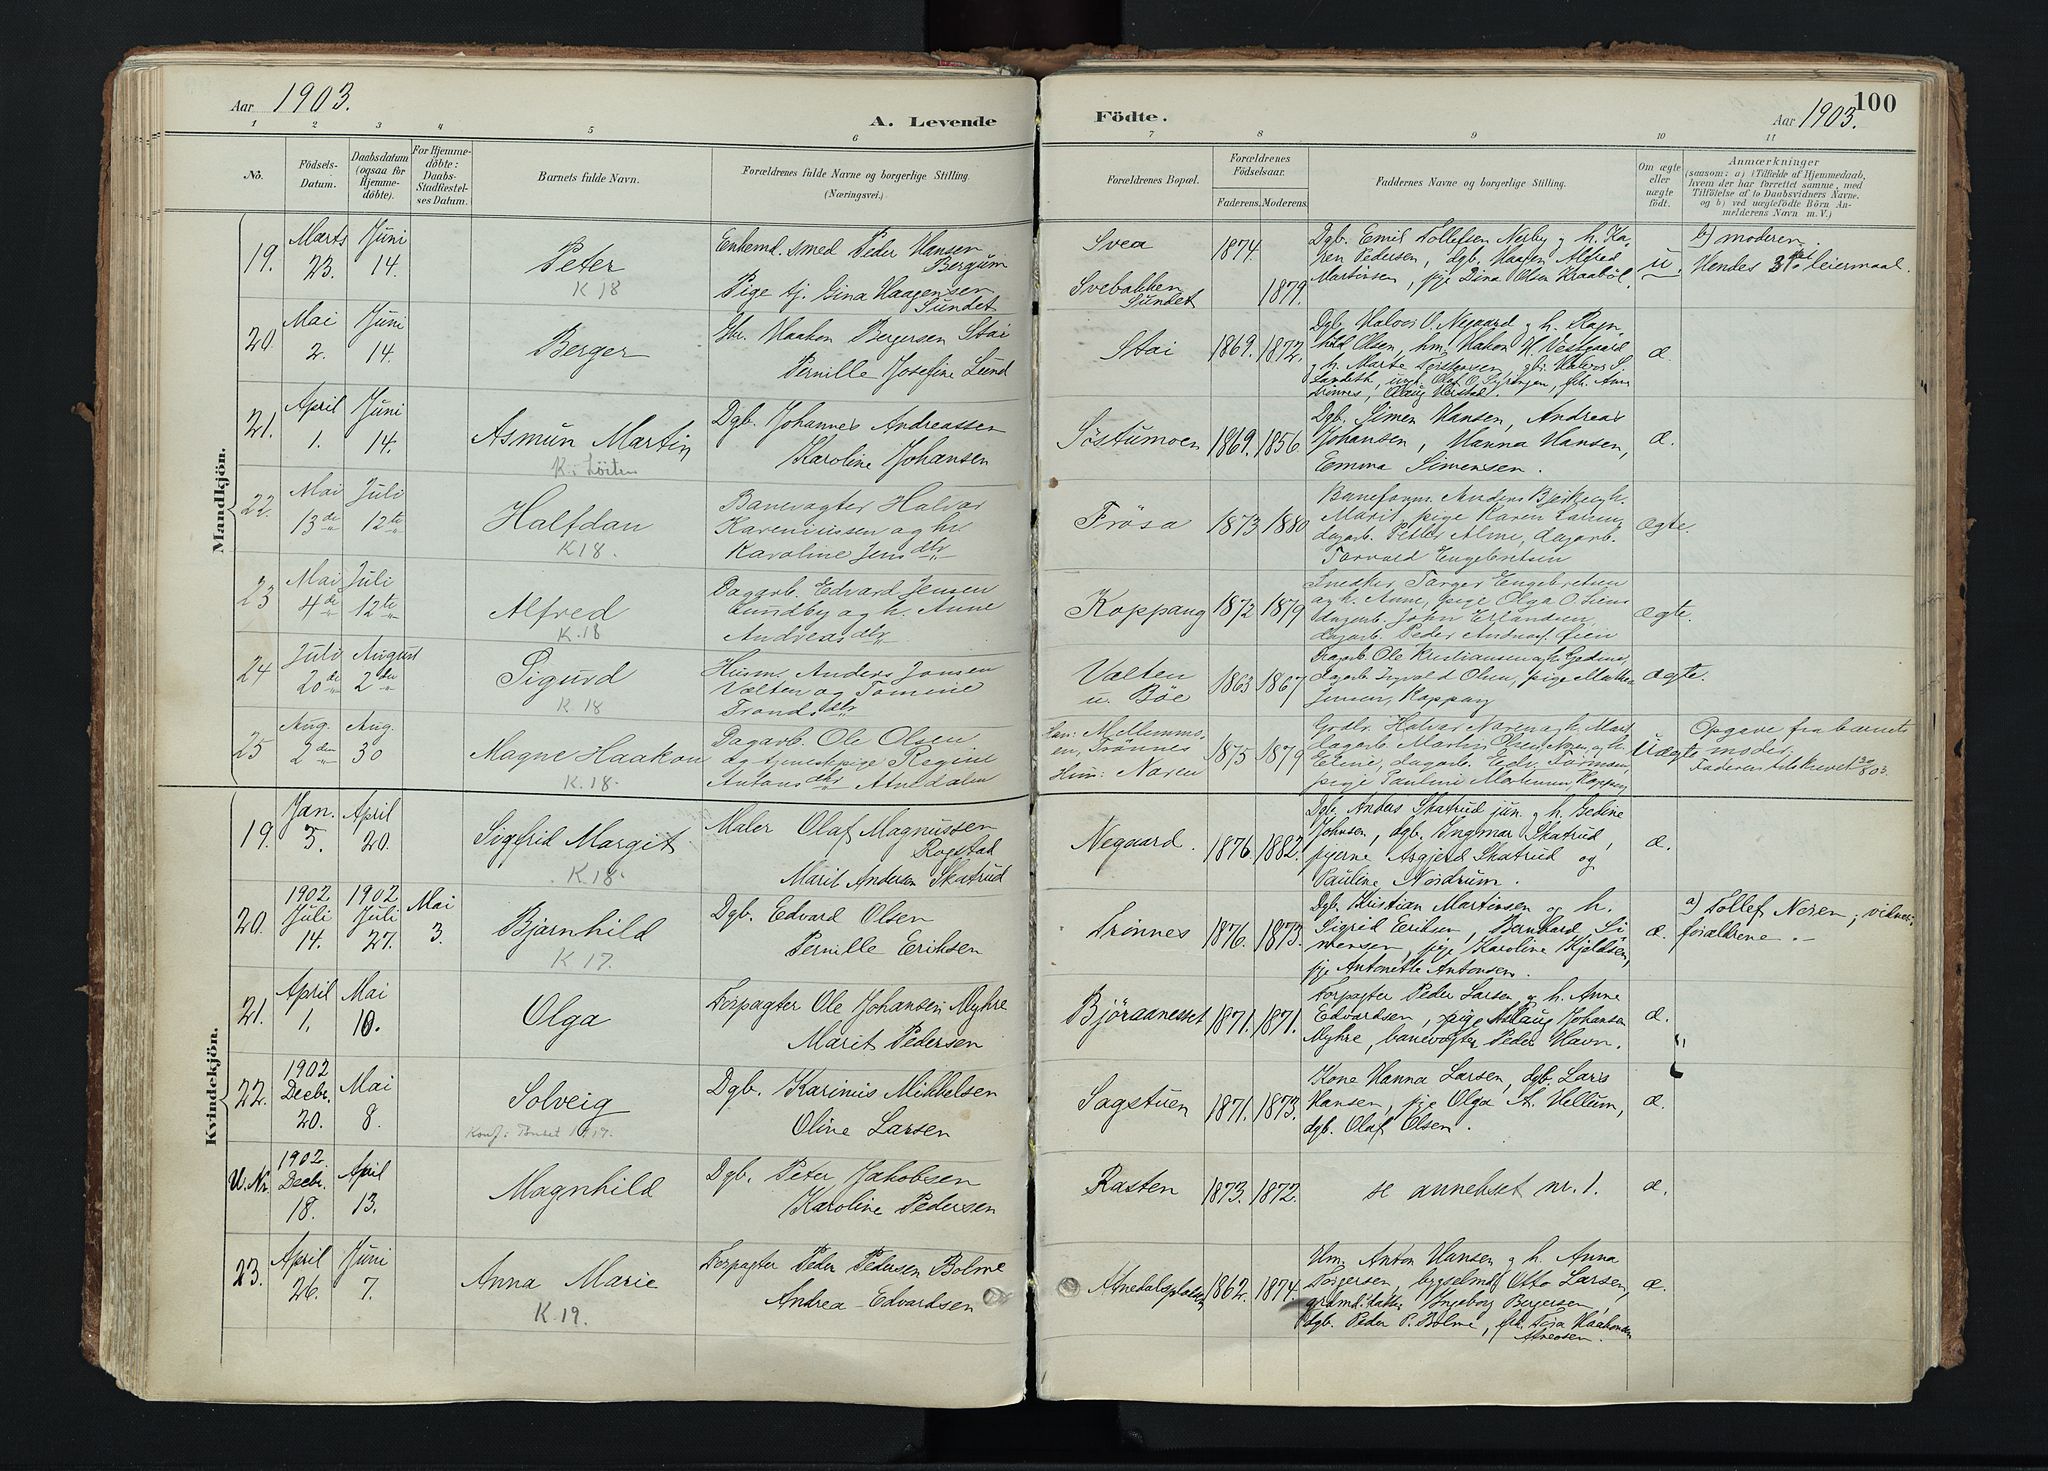 Aar 1903.
A. Levende
1 2 3 4 5 6
No.
Födsels-Datum.
Daabsdatum (ogsaa for Hjemmedöbte).
For Hjemmedöbte: Daabs-Stadfæstelses Datum.
Barnets fulde Navn.
Forældrenes fulde Navne og borgerlige Stilling. (Næringsvei.)
Mandkjön.
19. Marts 23. Juni 14. Peter K 18
Enkemd. smed Peder Hansen Bergum
Pige tj. Gina Haagensen Sundet
20. Mai 2. Juni 14. Berger
Haakon Bergersen Stai
Pernille Josefine Lund
21. April 1. Juni 14. Asmun Martin K. Löiten
Dgb. Johannes Andreassen
Karoline Johansen
22. Mai 13de Juli 12te Halfdan K18.
Banevogter Halvar
Kareniussen og h.
Karoline Jensdtr
23 Mai 4de Juli 12te Alfred K.18
Dagarb. Edvard Jensen
Lundby og h. Anne
Andreasdtr
24 Juli 20de August 2den Sigurd K. 18
Husm. Anders Jonsen
Vælten og Tomine
Trondsdtr
25 Aug. 2den Aug. 30 Magne Haakon K.18.
Dagarb. Ole Olsen
og tjenestepige Regine
Antonsdtr Atnedalen
Kvindekjön.
19. Jan. 5. April 20. Sigfrid Margit K18.
Maler Olaf Magnussen
Rogstad
Marit Andersen Skatrud
20. 1902 Juli 14. 1902 Juli 27. Mai 3. Bjarnhild K 17.
Dgb. Edvard Olsen
Pernille Eriksen
21. April 1. Mai 10. Olga
Forpagter Ole Johansen Myhre
Marit Pedersen
22. 1902 Decbr. 20. Mai 8. Solveig Konf: Tönset 1917.
Dgb. Karinius Mikkelsen
Oline Larsen
U.Nr. 1902 Decbr. 18. April 13. Magnhild
Dgb. Peter Jakobsen
Karoline Pedersen
23. April 26. Juni 7. Anna Marie K.19.
Forpagter Peder Pedersen Bolme
Andrea Edvardsen
Födte.
Aar 1903.
100
7 8 9 10 11
Forældrenes Bopæl.
Forældrenes Födselsaar.
Faderens. Moderens.
Faddernes Navne og borgerlige Stilling.
Om ægte eller uægte födt.
Anmærkninger
(saasom: a) i Tilfælde af Hjemmedaab,
hvem der har forrettet samme, med
Tilföielse af to Daabsvidners Navne.
og b) ved uægtefödte Börn Anmelderens
Navn m. V.)
Svea 1874.
Svebakken Sundet 1879.
Dgb. Emil Tollefsen Nerby og h. Karen
Pedersen, dgb. Haagen Alfred
Martinsen, pige Dina Olsen Kraaböl.
u.
b) moderen.
Hendes 3die leiermaal.
Stai 1869. 1872.
Dgb. Halvor O. Negaard og h. Ragnhild
Olsen, hm. Hakon H. Vestgaard
og h. Marte Torstensen, gbr. Halvor S.
æ.
Söstumoen 1869. 1856.
Dgb. Simen Hansen, Andreas
Johansen, Hanna Hansen,
Emma Simensen.
æ.
Trösa 1873 1880
Baneform. Anders Bjerke og h.
Marit, pige Karen Larsen,
dagarb. Petter Alme, dagarb.
Torvald Engebretsen
ægte.
Koppang 1872 1879
Snedker Torger Engebretsen
og h. Anne, pige Olga O. Liens
dagarb. John Erlandsen,
dagarb. Peder Öien
ægte.
Vælten u. Böe 1863 1867
Dagarb. Ole Kristiansen og h. Gedine,
dagarb. Ingvald Olsen, pige Marthea
Jensen, Koppang
ægte.
Han: Mellemmoen, Trönnes
Hun: Noren
1875 1879
Grdbr. Halvar Noren og h. Marit
dagarb. Martin Olsen Noren og h.
Eline, dagarb. Edv. Torman,
pige Pauline Mortensen, Koppang
Uægte
Opgave fra barnets
moder.
Faderen tilskrevet 30/8 03.
Negaard. 1876. 1882.
Dgb. Anders Skatrud jun. og h. Gedine
Johnsen, dgb. Ingmar Skatrud,
pigerne Asgjerd Skatrud og
Pauline Nordrum.
æ.
Trönnes 1876. 1873.
Dgb. Kristian Martinsen og h.
Sigrid Eriksen, Bernhard Simensen,
pige Karoline Kjeldsen,
pige Antonette Antonsen.
æ.
a) Tollef Noren; vidner:
forældrene.
Björaanesset 1871. 1871.
Forpagter Peder Larsen og h. Anne
Edvardsen, pige Aslaug Johansen
Myhre, banevogter Peder Havn.
æ.
Sagstuen 1871. 1873.
Kone Hanna Larsen, dgb. Lars
Hansen, pige Olga A. Hellum,
dgb. Olaf Olsen.
æ.
Rasten 1873. 1872.
se annekset nr. 1.
æ.
Atnedalsplassen 1862. 1874.
Hm. Anton Hansen og h. Anna
Torgersen, bygselmd. Otto Larsen,
grdmd.datter Ingeborg Bergersen,
dgb. Peder P. Bolme, frk. Tora Haakonsen
Atneosen.
æ.